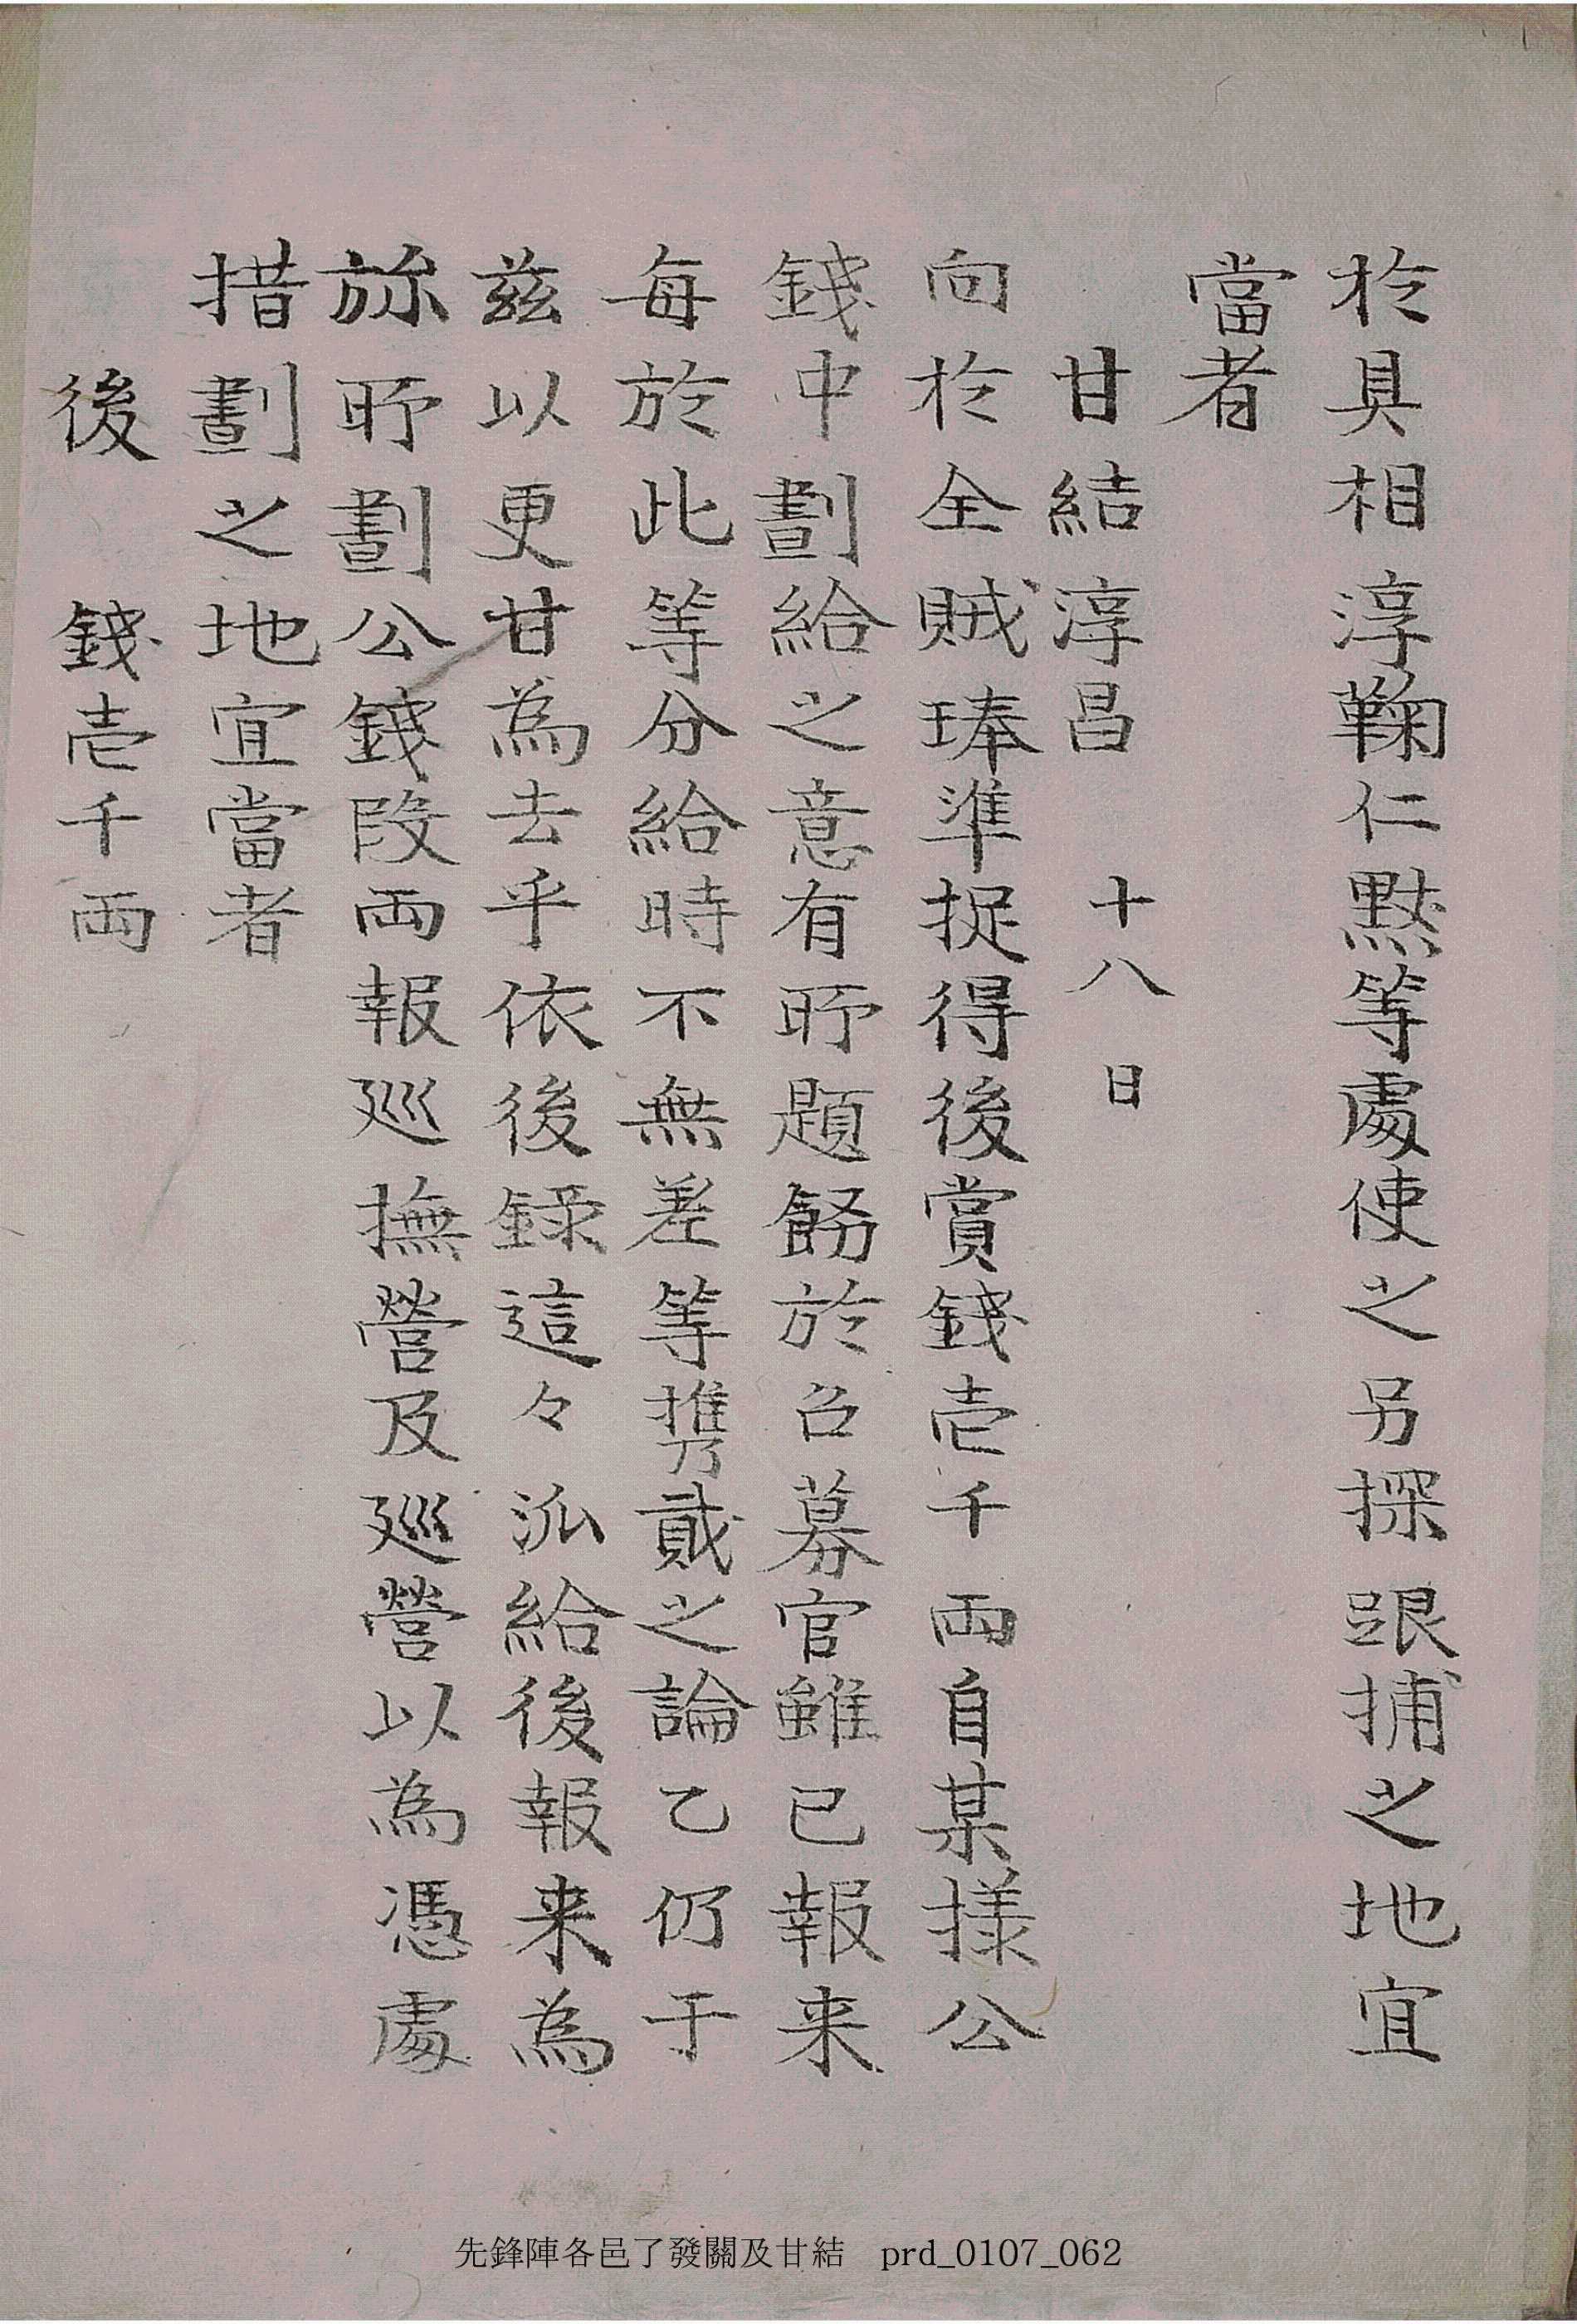 扵具相淳鞠仁黙等處使之另探跟捕之地宜
當者
甘結淳昌 十八日
向扵全賊琫準捉得後賞錢壱千兩自某様公
錢中劃給之意有所題飭於召募官雖已報来
每於此等分給時不無差等携貳之論乙仍于
兹以更甘為去乎依後録這々派給後報来為
旀所劃公錢段兩報廵撫營及廵營以為憑處
措劃之地宜當者
後 錢壱千兩
先鋒陣各邑了發關及甘結 prd_0107_062